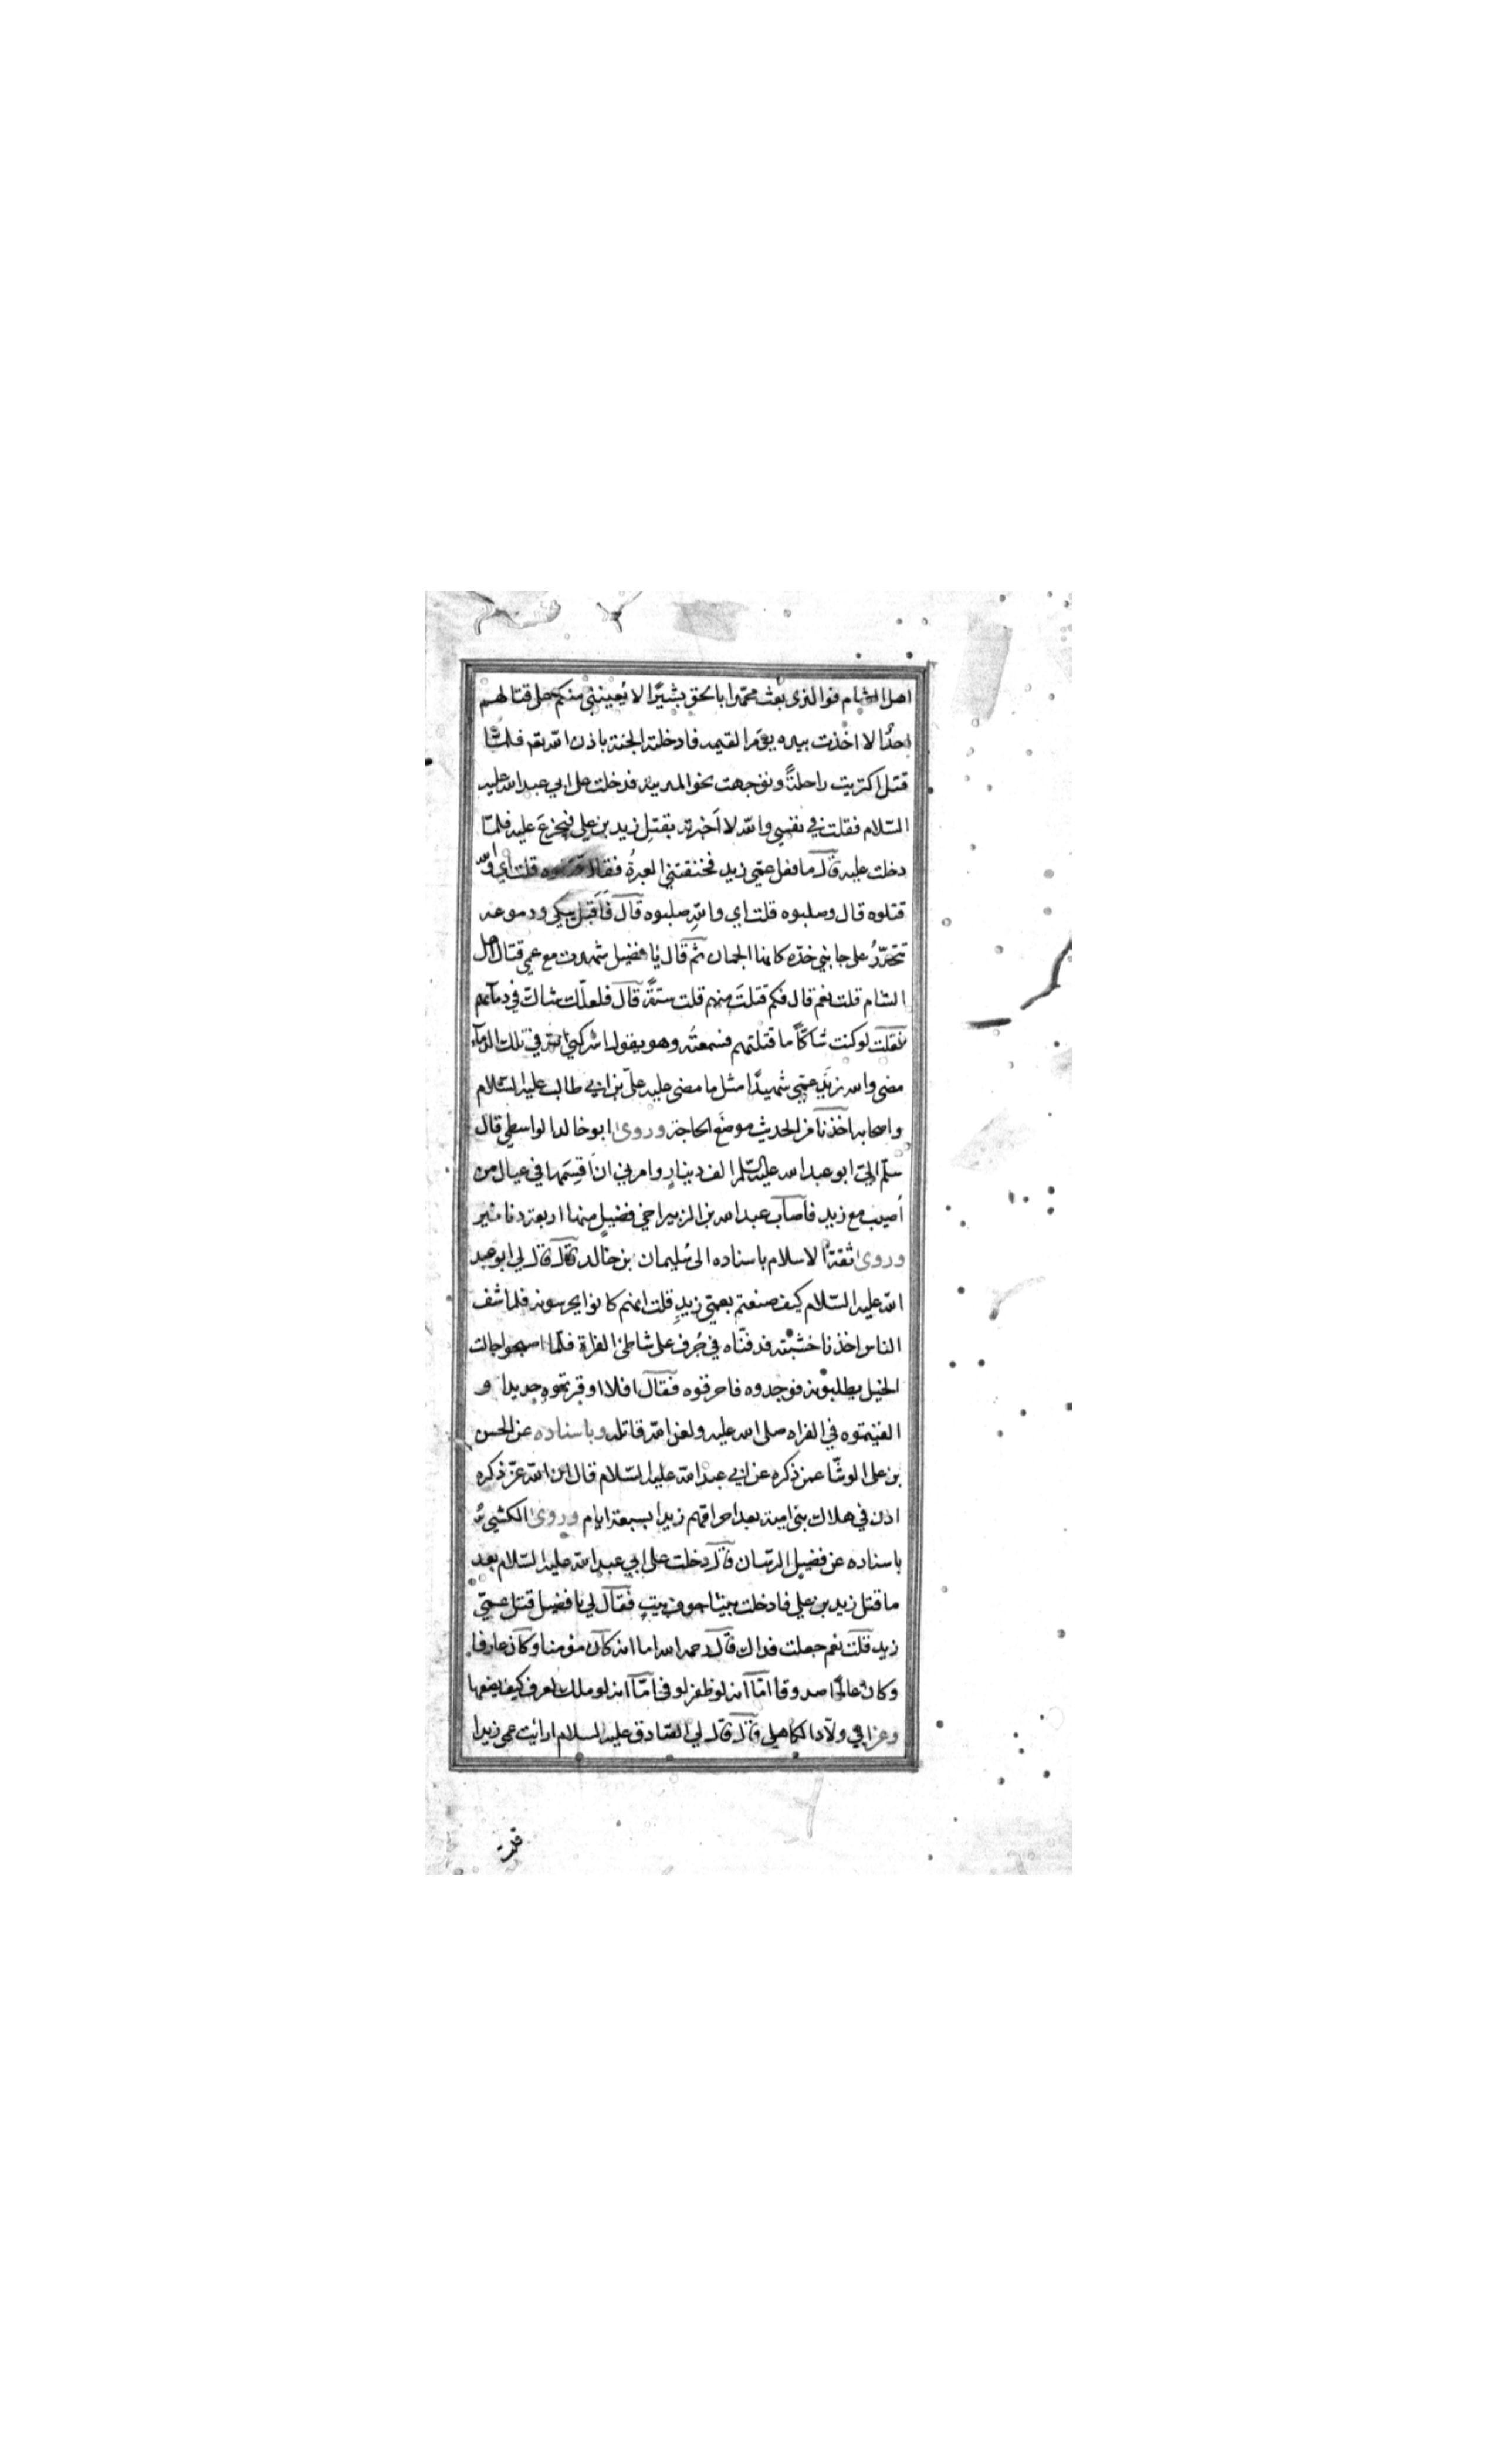 اهل الشام فوالذى بعث محمّدا بالحق بشيرًا لا يُعينني منكم على قتالهم
احدٌ الا اخذت بيده يوم القيمه فادخلته الجنة باذن الله تعم فلمّا
قتل اكتريت راحلةً وتوجهت نحو المدينه فدخلت على ابي عبد الله عليه
السّلام فقلت في نفسي والله لا اخبرته بقتل زيد بن علي فيجزعَ عليه فلمّا
دخلت عليه قال ما فعل عمّي زيد فخنقتني العبرةُ فقال قتلوه قلت اي والله
قتلوه قال وصلبوه قلت اي واللهِ صلبوه قال فَاَقبَل يبكي ودموعه
تتحدّرُ على جانبي خدّه كانها الجمان ثم قال يا فضيل شهدت مع عمي قتال اهل
الشام قلت نعم قال فكم قتلتَ منهم قلت ستةً قال فلعلّك شاكّ في دمائهم
فقلت لو كنت شاكّاً ما قتلتهم فسمعته وهو يقول اشركني الله في تلك الدماء
مضى والله زيد عمّي شهيدًا مثل ما مضى عليه علىّ بن ابي طالب عليه السّلام
واصحابه اخذنا من الحديث موضعَ الحاجة وروى ابو خالد الواسطي قال
سلّم اليّ ابو عبد الله عليه السّلم الف دينارٍ وامرني ان اَقسِمَها في عيال من
اُصيب مع زيد فاصاب عبد الله بن الزبير اخي فضيلٍ منها اربعة دنانير
وروى ثقة الاسلام باسناده الى سُليمان بن خالد قال قال لي ابو عبد
الله عليه السّلام كيف صنعتم بعمّي زيدٍ قلت انهم كانوا يحرسونه فلما شف
الناس اخذنا خشبته فدفنّاه في جُرف على شاطئ الفراة فلمّا اصبحوا جالت
الخيل يطلبونه فوجدوه فاحرقوه فقال افلا اوقرتموه حديدا و
القيتموه في الفراه صلى الله عليه ولعن الله قاتله وباسناده عن الحسن
بن على الوشّا عمن ذكره عن ابي عبد الله عليه السّلام قال ان الله عزّ ذكره
اذن في هلاك بني امية بعد احراقهم زيدا بسبعة ايام وروى الكشي
باسناده عن فضيل الرسّان قال دخلت على ابي عبد الله عليه السّلام بعد
ما قتل زيد بن علي فادخلت بيتا جوف بيتٍ فقال لي يا فضيل قتل عمّي
زيد قلت نعم جعلت فداك قال رحمه الله اما انه كان مؤمنا وكان عارفا
وكان عالمًا صدوقا امّا انه لو ظفر لوفى امّا انه لو ملك لعرف كيف يضعها
وعن ابي ولاّد الكاهلي قال قال لي الصّادق عليه السلام ارايت عمى زيدا
قلت